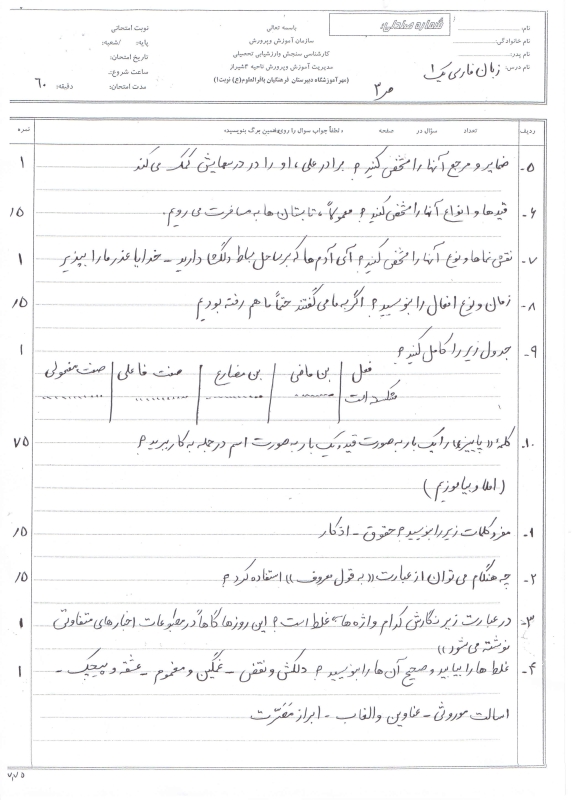 نام:
نام خانوادگی:
نام پدر:
نام درس: زبان فارسی یک
شماره صندلی:
ص ۳
باسمه تعالی
سازمان آموزش وپرورش
کارشناسی سنجش وارزشیابی تحصیلی
مدیریت آموزش وپرورش ناحیه ۳ شیراز
(مهرآموزشگاه دبیرستان فرهنگیان باقرالعلوم(ع) نوبت۱)
نوبت امتحانی
پایه: /شعبه:
تاریخ امتحان:
ساعت شروع:
مدت امتحان: ۶۰ دقیقه:
ردیف تعداد سوال در صفحه «لطفاً جواب سوال را روی همین برگ بنویسید» نمره
۵- ضمایر و مرجع آنها را مشخص کنید؟ برادر علی، او را در درسهایش کمک می کند ۱
۶- قیدها و انواع آنها را مشخص کنید؟ معمولاً، تابستان ها به مسافرت می رویم. /۵
۷- نقش نماها و نوع آنها را مشخص کنید؟ آی آدم ها که بر ساحل بساط دلگشا دارید - خدایا عذر ما را بپذیر ۱
۸- زمان و نوع افعال را بنویسید؟ اگر به ما می گفتند حتماً ما هم رفته بودیم /۵
۹- جدول زیر را کامل کنید؟ ۱
فعل بن ماضی بن مضارع صفت فاعلی صفت مفعولی
شکسته است ........ ........ ........ ........
۱۰- کلمه «پاییز» را یک بار به صورت قید و یک بار به صورت اسم در جمله به کار ببرید؟ /۷۵
(املا و بیاموزیم)
۱- مفرد کلمات زیر را بنویسید؟ حقوق - اذکار /۵
۲- چه هنگام می توان از عبارت «به قول معروف» استفاده کرد؟ /۵
۳- در عبارت زیر نگارش کدام واژه ها غلط است؟ این روزها گاهاً در مطبوعات اخبارهای متفاوتی ۱
نوشته می شود»
۴- غلط ها را بیابید و صحیح آن ها را بنویسید؟ دلکش و نقض - غمگین و مغموم - عشقه و پیچک - ۱
اسالت موروثی - عناوین والقاب - ابراز مَضَرّت
۷/۷۵